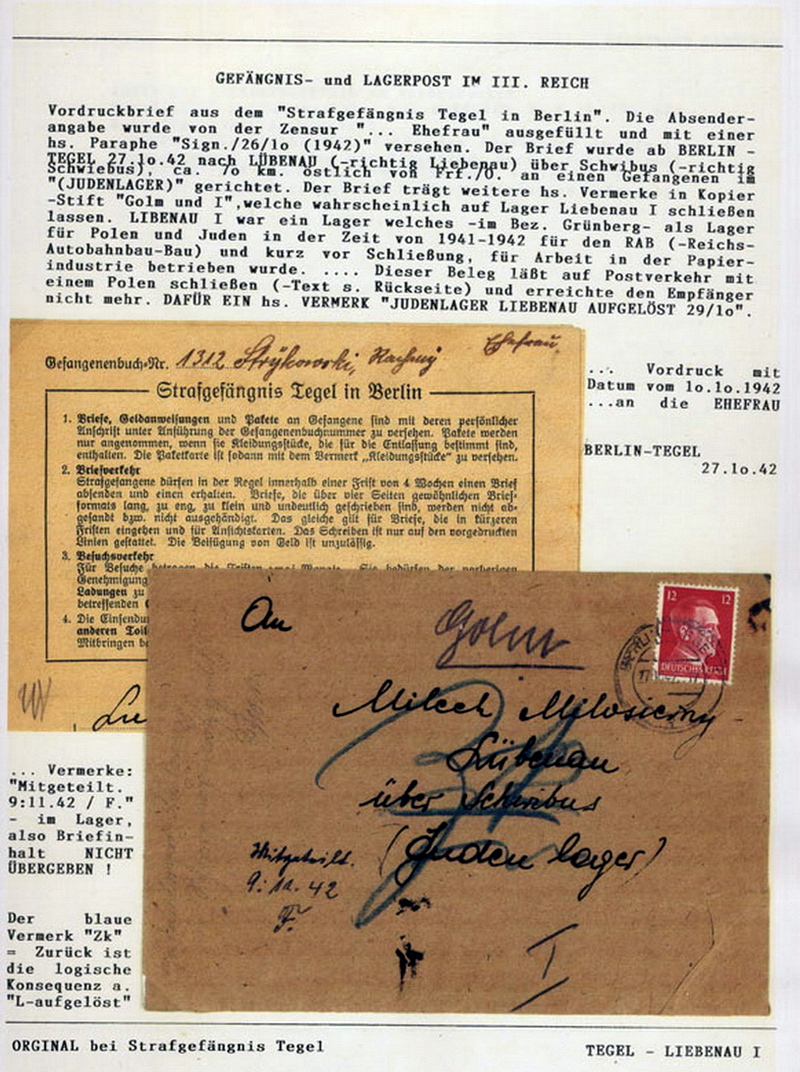 GEFÄNGNIS- und LAGERPOST IM III. REICH
Vordruckbrief aus dem "Strafgefängnis Tegel in Berlin". Die Absender-
angabe wurde von der Zensur "... Ehefrau" ausgefüllt und mit einer
hs. Paraphe "Sign./26/1o (1942)" versehen. Der Brief wurde ab BERLIN -
TEGEL 27.1o.42 nach LÜBENAU (-richtig Liebenau) über Schwibus (-richtig
Schwiebus), ca. 7o km. östlich von Frf./O. an einen Gefangenen im
"(JUDENLAGER)" gerichtet. Der Brief trägt weitere hs. Vermerke in Kopier
-Stift "Golm und I",welche wahrscheinlich auf Lager Liebenau I schließen
lassen. LIBENAU I war ein Lager welches -im Bez. Grünberg- als Lager
für Polen und Juden in der Zeit von 1941-1942 für den RAB (-Reichs-
Autobahnbau-Bau) und kurz vor Schließung, für Arbeit in der Papier-
industrie betrieben wurde. .... Dieser Beleg läßt auf Postverkehr mit
einem Polen schließen (-Text s. Rückseite) und erreichte den Empfänger
nicht mehr. DAFÜR EIN hs. VERMERK "JUDENLAGER LIEBENAU AUFGELÖST 29/1o".
Ehefrau.
Gefangenenbuch-Nr. 1312 Strykowski,
Strafgefängnis Tegel in Berlin
1. Briefe, Geldanweisungen und Pakete an Gefangene sind mit deren persönlicher
Anschrift unter Anführung der Gefangenenbuchnummer zu versehen. Pakete werden
nur angenommen, wenn sie Kleidungsstücke, die für die Entlassung bestimmt sind,
enthalten. Die Paketkarte ist sodann mit dem Vermerk „Kleidungsstücke" zu versehen.
2. Briefverkehr
Strafgefangene dürfen in der Regel innerhalb einer Frist von 4 Wochen einen Brief
absenden und einen erhalten. Briefe, die über vier Seiten gewöhnlichen Brief-
formats lang, zu eng, zu klein und undeutlich geschrieben sind, werden nicht ab-
gesandt bzw. nicht ausgehändigt. Das gleiche gilt für Briefe, die in kürzeren
Fristen eingehen und für Ansichtskarten. Das Schreiben ist nur auf den vorgedruckten
Linien gestattet. Die Beifügung von Geld ist unzulässig.
3. Besuchsverkehr
Für Besuche betragen die Fristen zwei Monate. Sie bedürfen der vorherigen
Genehmigung
Ladungen zu
betreffenden
4. Die Einsendu
anderen Toil
Mitbringen be
... Vordruck mit
Datum vom 1o.1o.1942
...an die EHEFRAU
BERLIN-TEGEL
27.1o.42
An
Golm
12 12
DEUTSCHES REICH
Milech Milosiczny
Lübenau
über Schwibus
(Judenlager)
Mitgeteilt.
9.11.42
F.
I
... Vermerke:
"Mitgeteilt.
9:11.42 / F."
- im Lager,
also Briefin-
halt NICHT
ÜBERGEBEN !
Der blaue
Vermerk "Zk"
= Zurück ist
die logische
Konsequenz a.
"L-aufgelöst"
ORGINAL bei Strafgefängnis Tegel
TEGEL - LIEBENAU I